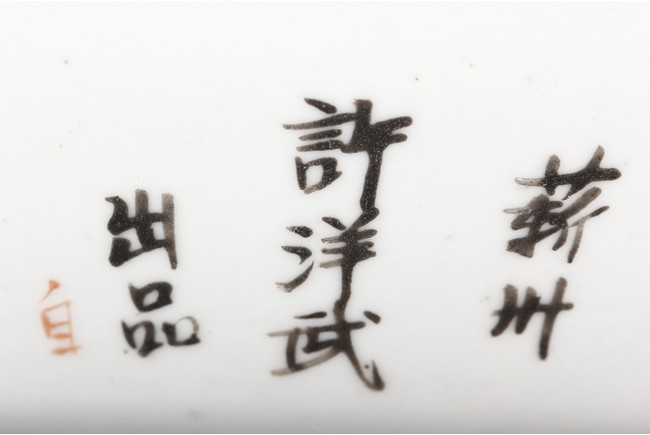 蘄州
許洋武
出品
自